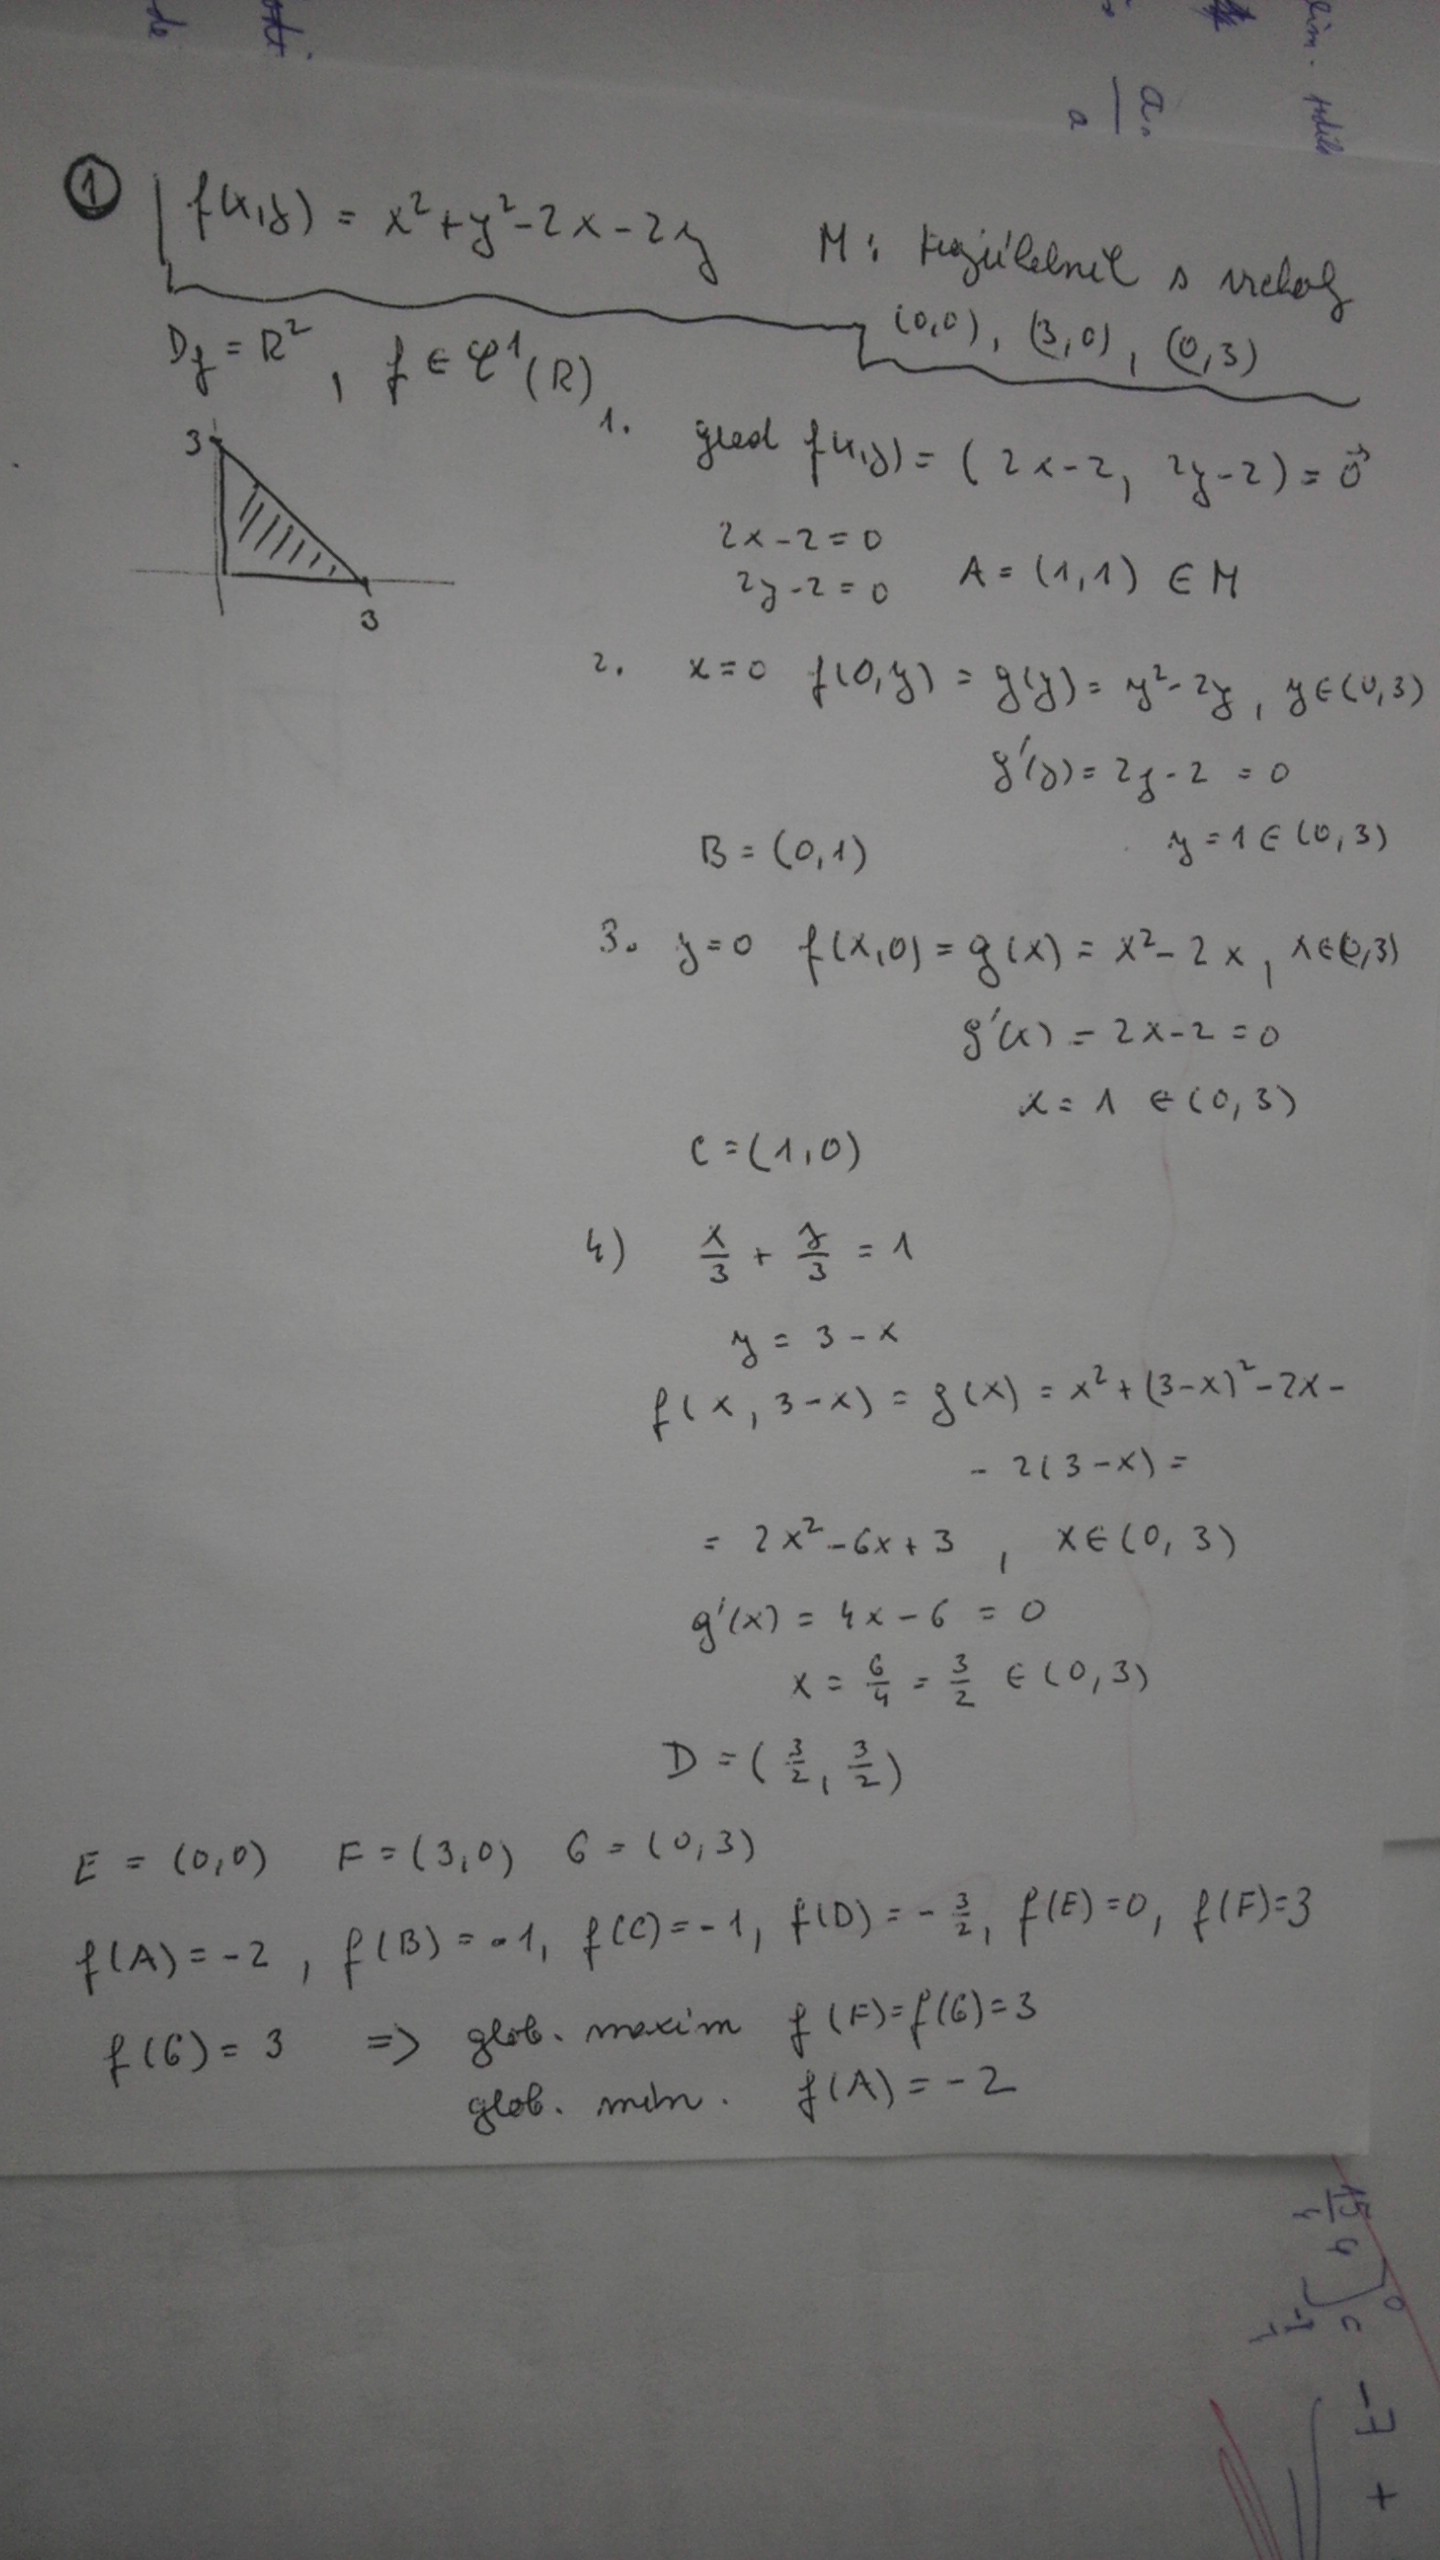 ① f(x,y) = x² + y² - 2x - 2y M: trojúhelník s vrcholy
(0,0), (3,0), (0,3)
D_f = R², f ∈ C¹(R)
3
3
1. grad f(x,y) = (2x-2, 2y-2) = 0⃗
2x-2 = 0
2y-2 = 0 A = (1,1) ∈ M
2. x=0 f(0,y) = g(y) = y² - 2y, y∈(0,3)
g'(y) = 2y-2 = 0
y = 1 ∈ (0,3)
B = (0,1)
3. y=0 f(x,0) = g(x) = x² - 2x, x∈(0,3)
g'(x) = 2x-2 = 0
x = 1 ∈ (0,3)
C = (1,0)
4) x/3 + y/3 = 1
y = 3-x
f(x, 3-x) = g(x) = x² + (3-x)² - 2x -
- 2(3-x) =
= 2x² - 6x + 3, x∈(0,3)
g'(x) = 4x - 6 = 0
x = 6/4 = 3/2 ∈ (0,3)
D = (3/2, 3/2)
E = (0,0) F = (3,0) G = (0,3)
f(A) = -2, f(B) = -1, f(C) = -1, f(D) = -3/2, f(E) = 0, f(F) = 3
f(G) = 3 => glob. maxim f(F) = f(G) = 3
glob. min. f(A) = -2
-7 +